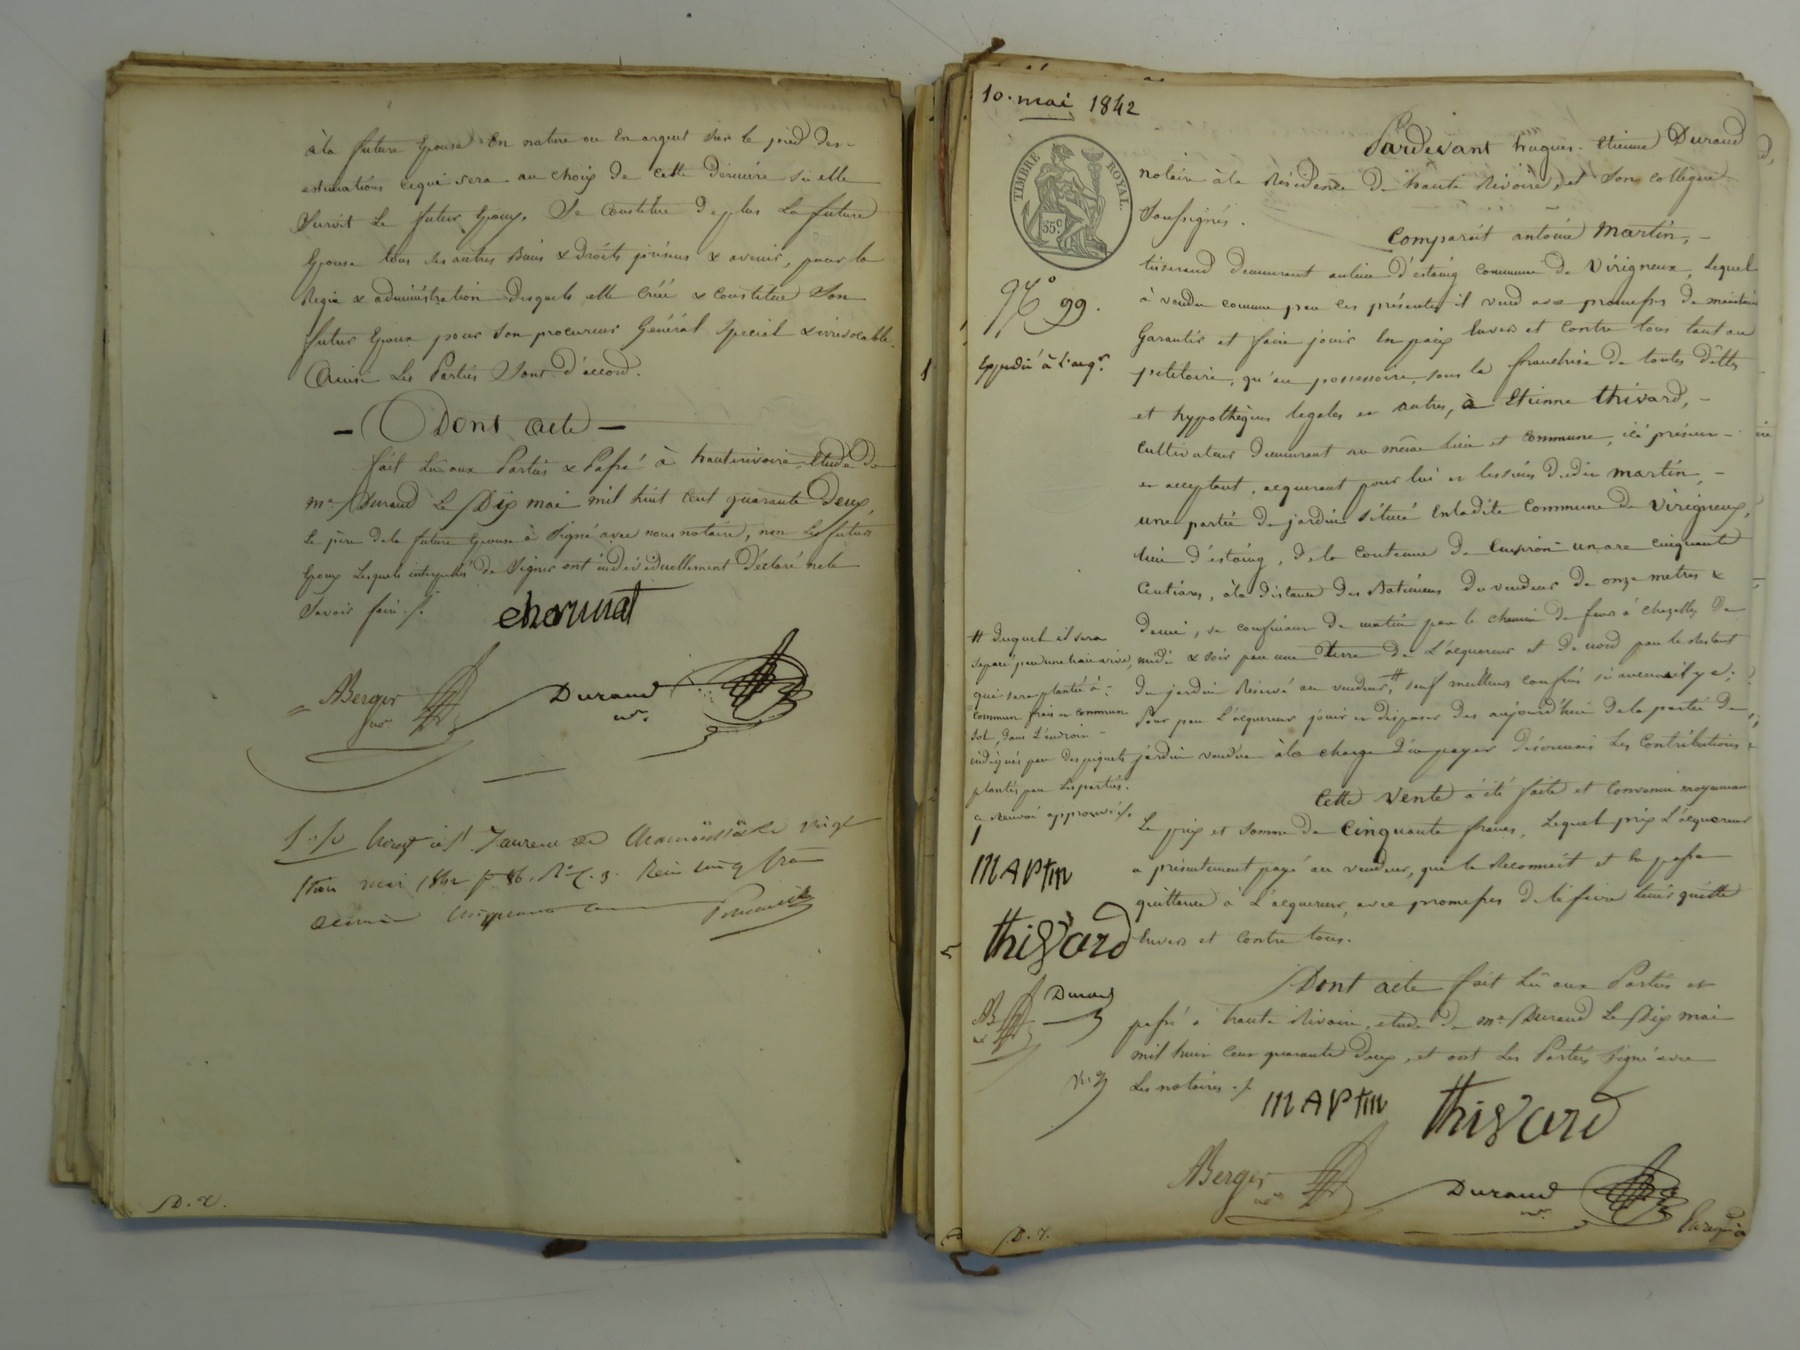 à la future Epouse En nature ou En argent sur le pied des
estimations ce qui sera au choix de cette dernière si elle
survit le futur Epoux. Se constitue de plus la future
Epouse tous ses autres Biens & droits présens & avenir, pour la
Régie & administration desquels elle créé & constitue Son
futur Epoux pour son procureur Général Spécial & irrévocable.
Ainsi Les Parties Sont d'accord.
- Dont acte -
fait Lû aux Parties & Passé à hauterivoire, Etude de
me Durand Le Dix mai mil huit cent quarante Deux,
Le père de la future Epouse à Signé avec nous notaire, non les futurs
Epoux Lesquels interpellés de Signer ont individuellement Déclaré ne le
Savoir faire ./.
charnnat
ABerger
nre
Durand
nre
St Laurent de Chamousset le vingt
mai 1842 fo 86. Ro C. 3. Reçu cinq francs
décime cinquante centimes
D. V.
10. mai 1842
TIMBRE ROYAL.
35c
No 99.
Expédié à l'acqr
Pardevant hugues-Etienne Durand
notaire à la Résidence de haute Rivoire, et Son collègue
Soussignés.
Comparait antoine Martin, -
tisserand demeurant au lieu d'estaing commune de Virigneux, Lequel
à vendu comme par ces présentes il vend avec promesses de maintenir
Garantir et faire jouir En paix Envers et Contre tous tant au
petitoire, qu'au possessoire, sous la franchise de toutes dettes
et hypothèques legales et autres, à Etienne thivard, -
Cultivateur Demeurant au même lieu et commune, ici présent -
et acceptant, acquerant pour lui et les siens dudit martin, -
une partie de jardin située Enladite Commune de Virigneux,
lieu d'estaing, de la Contenue de Environ un are cinquante
Centiares, à la distance des Batimens du vendeur de onze metres &
demi, se confinant de matin par le chemin de feurs à chazelles, de
midi & soir par une terre de L'acquereur et de nord par le restant
du jardin Réservé au vendeur, # sauf meilleurs confins si aucuns il y a;
Pour par L'acquereur jouir et disposer dès aujourd'hui de la partie de
jardin vendue à la charge d'en payer désormais Les Contributions
Cette Vente à été faite et Convenue moyennant
Le prix et Somme de Cinquante francs, Lequel prix L'acquereur
a présentement payé au vendeur, qui le Reconnait et En passe
quittance à L'acquereur, avec promesses de le faire tenir quitte
Envers et contre tous.
Dont acte fait Lû aux Parties et
passé à haute Rivoire, étude de me Durand Le Dix mai
mil huit Cent quarante Deux, et ont Les Parties Signé avec
Les notaires ./.
# Duquel il sera
séparé par une haie vive,
qui sera plantée à
commun frais en commun
sol, dans L'endroit
indiqués par des piquets
plantés par Les parties.
renvoi approuvé ./.
MARtin
thivard
AB
Durand
MARtin
thivard
ABerger
nre
Durand
nre
D. V.